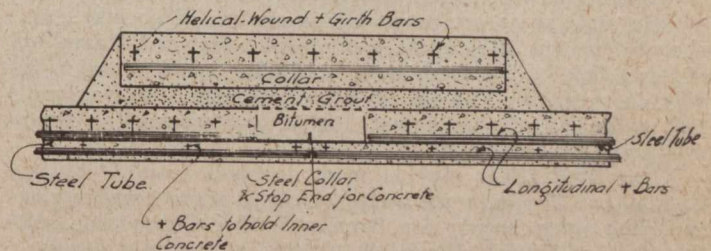 Helical-Wound + Girth Bars
Collar
Cement Grout
Bitumen
Steel Tube
Steel Tube.
Steel Collar
& Stop End for Concrete
Longitudinal + Bars
+ Bars to hold Inner
Concrete